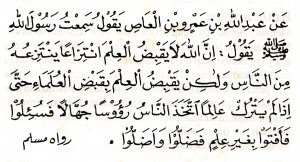 عَنْ عَبْدِ اللهِ بْنِ عَمْرِو بْنِ الْعَاصِ يَقُولُ سَمِعْتُ رَسُولَ اللهِ
ﷺ يَقُولُ : إِنَّ اللهَ لَا يَقْبِضُ الْعِلْمَ انْتِزَاعًا يَنْتَزِعُهُ
مِنَ النَّاسِ وَلٰكِنْ يَقْبِضُ الْعِلْمَ يَقْبِضُ الْعُلَمَاءَ حَتَّى
إِذَا لَمْ يَتْرُكْ عَالِمًا اتَّخَذَ النَّاسُ رُؤُوسًا جُهَّالًا فَسُئِلُوا
فَأَفْتَوْا بِغَيْرِ عِلْمٍ فَضَلُّوا وَأَضَلُّوا . رواه مسلم